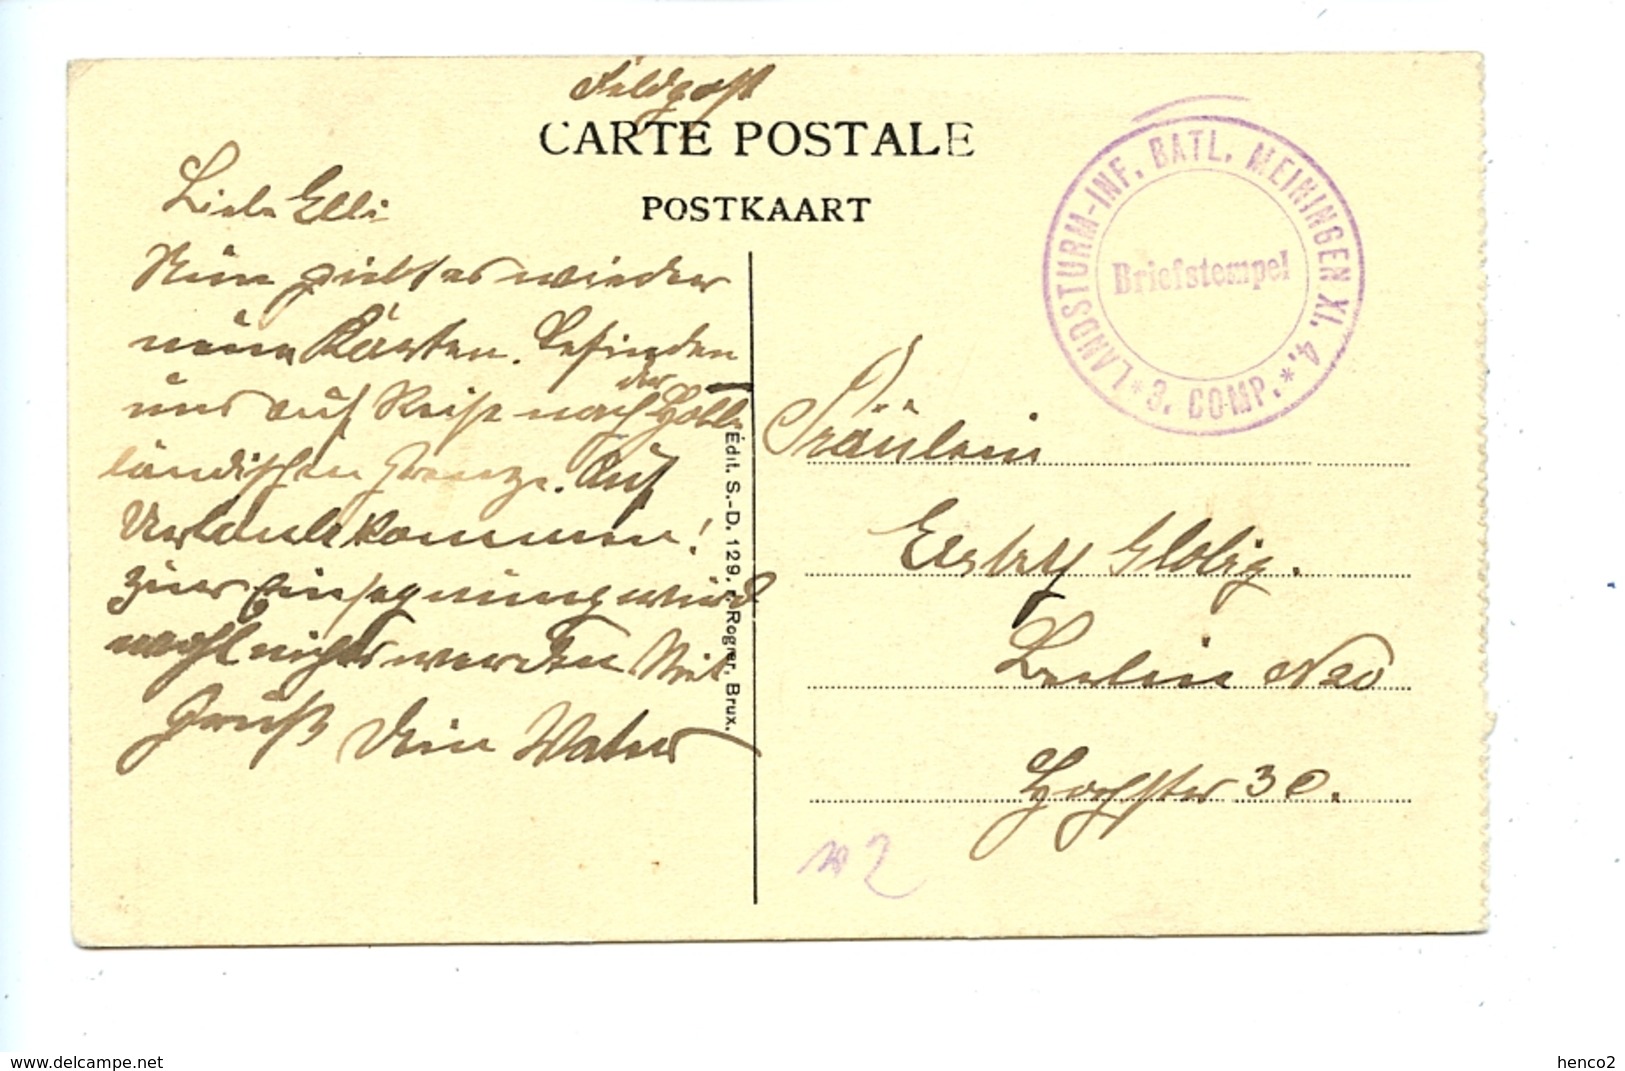 Feldpost
CARTE POSTALE
POSTKAART
LANDSTURM-INF. BATL. MEININGEN XI. 4.
* 3. COMP. *
Briefstempel
Liebe Elli
Nun giebt es wieder
neue Karten. Befinden
uns auf Reise nach der Holl-
ländischen Grenze. Auf
Urlaub kommen!
zur Einsegnung wird
wohl nichts werden Mit
Gruß Dein Vater
Édit. S.-D. 129, r. Rogier, Brux.
Fräulein
Globig.
Berlin
Höchster 30.
2
delcampe.net
henco2